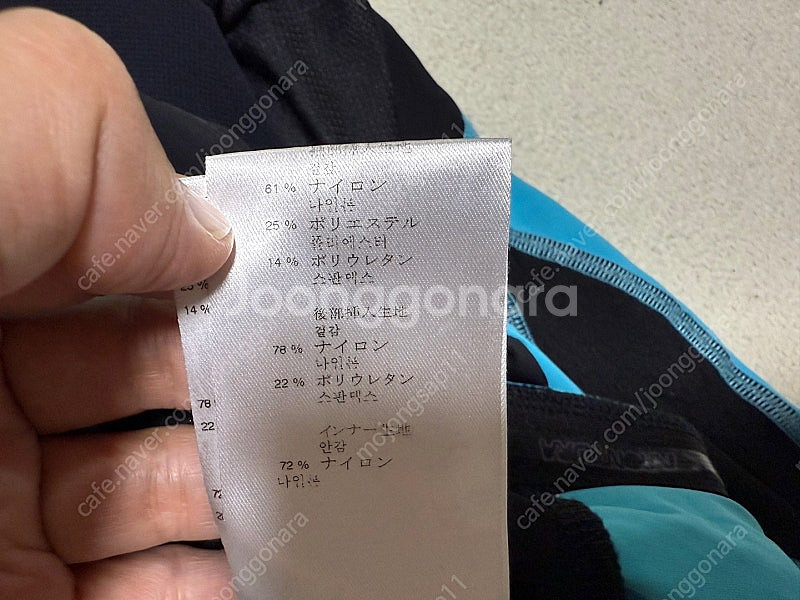 挿入生地
겉감
61 % ナイロン
나일론
25 % ポリエステル
폴리에스터
14 % ポリウレタン
스판덱스
後部挿入生地
겉감
78 % ナイロン
나일론
22 % ポリウレタン
스판덱스
インナー生地
안감
72 % ナイロン
나일론
25 %
14 %
78
22
72
2
joonggonara
cafe.naver.com/joonggonara